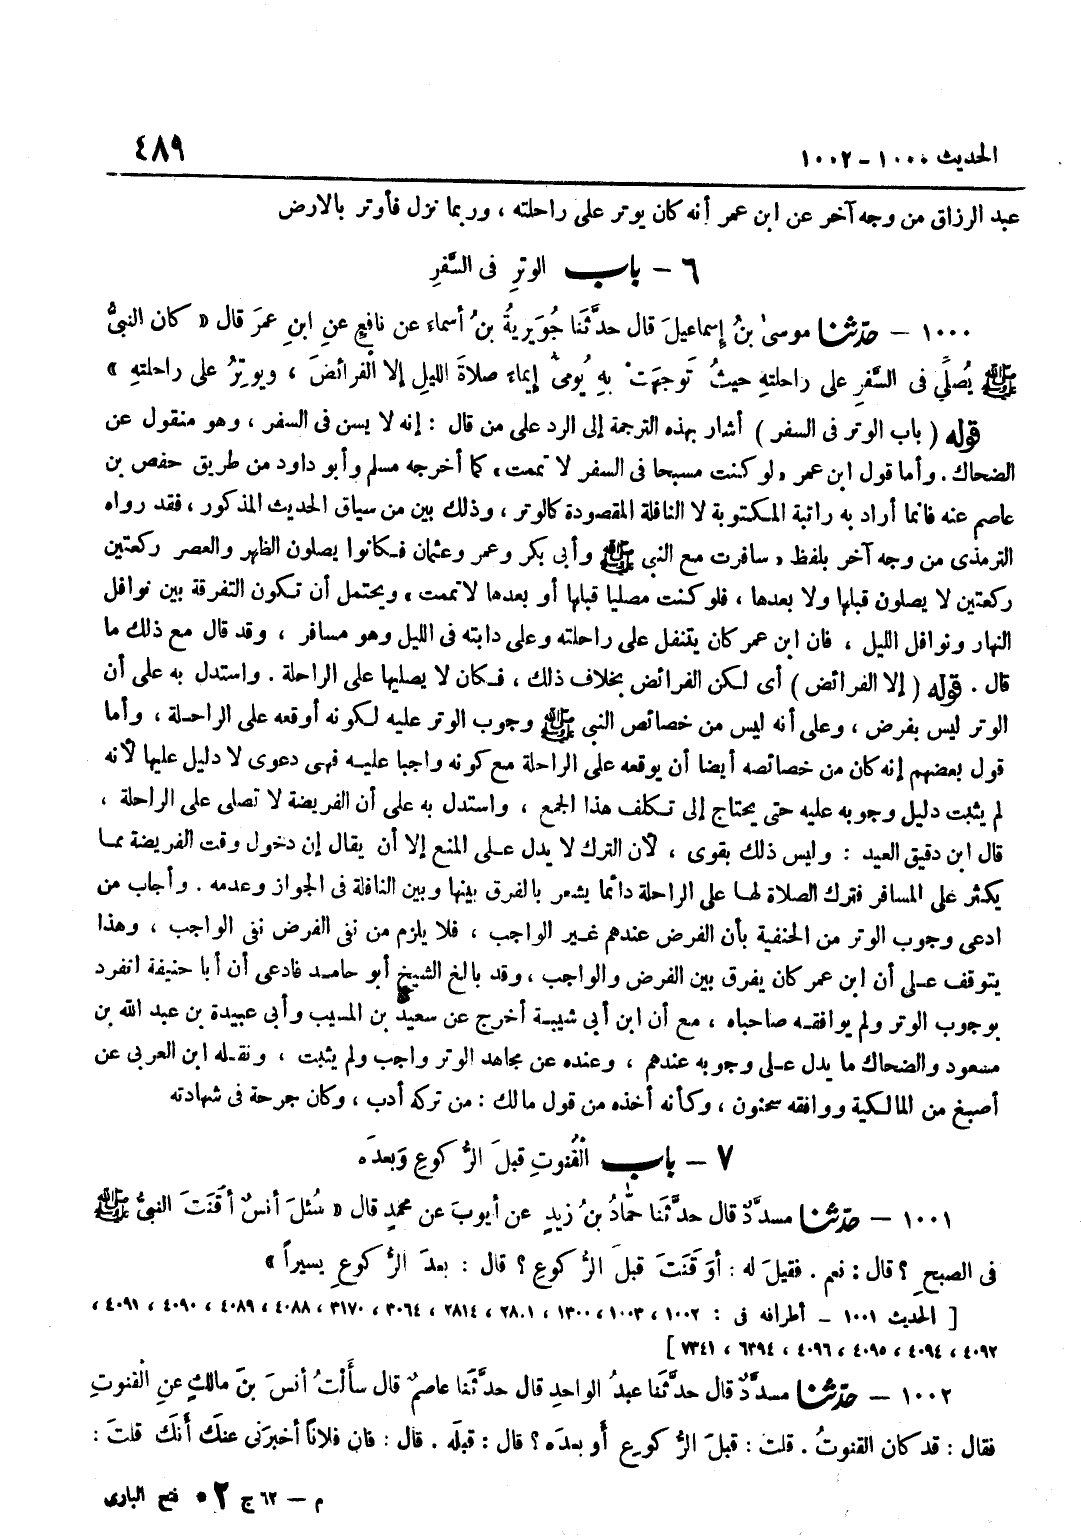 الحديث ١٠٠٠ – ١٠٠٢
٤٨٩
عبد الرزاق من وجه آخر عن ابن عمر أنه كان يوتر على راحلته ، وربما نزل فأوتر بالارض
٦ – باب الوترِ فى السَّفرِ
١٠٠٠ – حدّثنا موسىٰ بنُ إسماعيلَ قال حدَّثَنا جُوَيريةُ بنُ أسماءَ عن نافعٍ عنِ ابنِ عمرَ قال « كان النبىُّ
ﷺ يُصلِّى فى السَّفرِ على راحلتهِ حيثُ تَوجهَتْ بهِ يُومئُ إيماءَ صلاةَ الليلِ إلا الْفرائضَ ، ويوتِرُ على راحلتهِ »
قوله ( باب الوتر فى السفر ) أشار بهذه الترجمة إلى الرد على من قال : إنه لا يسن فى السفر ، وهو منقول عن
الضحاك . وأما قول ابن عمر « لو كنت مسبحا فى السفر لا تممت » كما أخرجه مسلم وأبو داود من طريق حفص بن
عاصم عنه فانما أراد به راتبة المكتوبة لا النافلة المقصودة كالوتر ، وذلك بين من سياق الحديث المذكور ، فقد رواه
الترمذى من وجه آخر بلفظ « سافرت مع النبى ﷺ وأبى بكر وعمر وعثمان فكانوا يصلون الظهر والعصر ركعتين
ركعتين لا يصلون قبلها ولا بعدها ، فلو كنت مصليا قبلها أو بعدها لاتممت » ويحتمل أن تكون التفرقة بين نوافل
النهار ونوافل الليل ، فان ابن عمر كان يتنفل على راحلته وعلى دابته فى الليل وهو مسافر ، وقد قال مع ذلك ما
قال . قوله ( إلا الفرائض ) أى لكن الفرائض بخلاف ذلك ، فكان لا يصليها على الراحلة . واستدل به على أن
الوتر ليس بفرض ، وعلى أنه ليس من خصائص النبى ﷺ وجوب الوتر عليه لكونه أوقعه على الراحلة ، وأما
قول بعضهم إنه كان من خصائصه أيضا أن يوقعه على الراحلة مع كونه واجبا عليه فهى دعوى لا دليل عليها لأنه
لم يثبت دليل وجوبه عليه حتى يحتاج إلى تكلف هذا الجمع ، واستدل به على أن الفريضة لا تصلى على الراحلة ،
قال ابن دقيق العيد : وليس ذلك بقوى ، لأن الترك لا يدل على المنع إلا أن يقال إن دخول وقت الفريضة مما
يكثر على المسافر فترك الصلاة لها على الراحلة دائما يشعر بالفرق بينها وبين النافلة فى الجواز وعدمه . وأجاب من
ادعى وجوب الوتر من الحنفية بأن الفرض عندهم غير الواجب ، فلا يلزم من نفى الفرض نفى الواجب ، وهذا
يتوقف على أن ابن عمر كان يفرق بين الفرض والواجب ، وقد بالغ الشيخ أبو حامد فادعى أن أبا حنيفة انفرد
بوجوب الوتر ولم يوافقه صاحباه ، مع أن ابن أبى شيبة أخرج عن سعيد بن المسيب وأبى عبيدة بن عبد الله بن
مسعود والضحاك ما يدل على وجوبه عندهم ، وعنده عن مجاهد الوتر واجب ولم يثبت ، ونقله ابن العربى عن
أصبغ من المالكية ووافقه سحنون ، وكأنه أخذه من قول مالك : من تركه أدب ، وكان جرحة فى شهادته
٧ – باب الْقُنوتِ قبلَ الرُّكوعِ وَبعدَه
١٠٠١ – حدّثنا مسدَّدٌ قال حدَّثَنا حَمَّادُ بنُ زيدٍ عن أيوبَ عن محمدٍ قال « سُئلَ أنسٌ أقَنَتَ النبىُّ ﷺ
فى الصبحِ ؟ قال : نعم . فقيلَ له : أوَ قَنَتَ قبلَ الرُّكوعِ ؟ قال : بعدَ الرُّكوعِ يسيراً »
[ الحديث ١٠٠١ – أطرافه فى : ١٠٠٢ ، ١٠٠٣ ، ١٣٠٠ ، ٢٨٠١ ، ٢٨١٤ ، ٣٠٦٤ ، ٣١٧٠ ، ٤٠٨٨ ، ٤٠٨٩ ، ٤٠٩٠ ، ٤٠٩١ ،
٤٠٩٢ ، ٤٠٩٤ ، ٤٠٩٥ ، ٤٠٩٦ ، ٦٣٩٤ ، ٧٣٤١ ]
١٠٠٢ – حدّثنا مسدَّدٌ قال حدَّثَنا عبدُ الواحدِ قال حدَّثَنا عاصمٌ قال سأَلْتُ أنسَ بنَ مالكٍ عنِ الْقنوتِ
فقال : قد كان القنوتُ . قلت : قبلَ الرُّكوعِ أَو بعدَه ؟ قال : قبلَه . قال : فان فلاناً أخبرَنى عنكَ أَنكَ قلتَ :
م – ٦٢ ج ٢ • فتح البارى